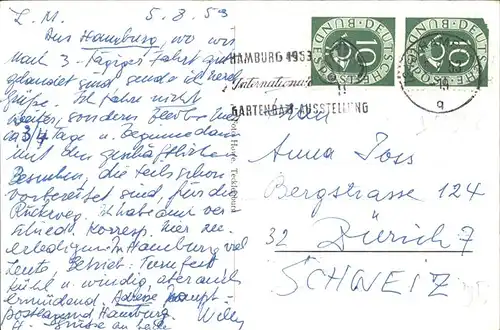 L. M. 5.8.53
Aus Hamburg, wo wir
nach 3-tägiger Fahrt gut
gelandet sind sende ich herzl.
Grüße. Ich fahre nicht
weiter, sondern bleibe hier
ca 3/4 Tage u. beginne dann
mit den geschäftlichen
Besuchen, die teils schon
vorbereitet sind, für die
Rückweg. Ich habe
Korresp. hier zu
erledigen. In Hamburg viel
Leute, Betrieb: Turnfest
kühl u. windig, aber auch
ermüdend. Adresse Haupt-
postlagernd Hamburg.
Grüsse an beide Willy
HAMBURG 1953
Internationale
GARTENBAU-AUSSTELLUNG
DEUTSCHE BUNDESPOST 10
DEUTSCHE BUNDESPOST 10
Anna Joss
Bergstrasse 124
32 Zürich 7
SCHWEIZ